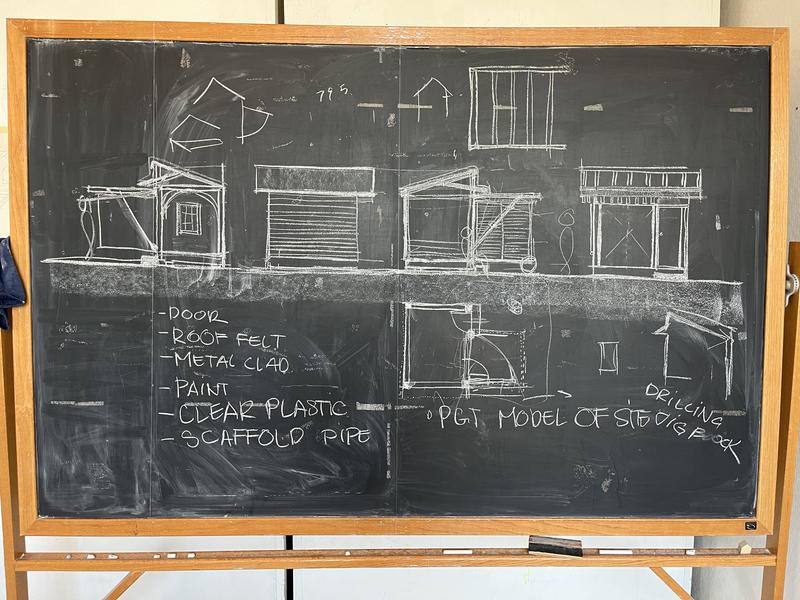 795
-DOOR
-ROOF FELT
-METAL CLAD
-PAINT
-CLEAR PLASTIC
-SCAFFOLD PIPE
MODEL OF SITE
DRILLING
DIG